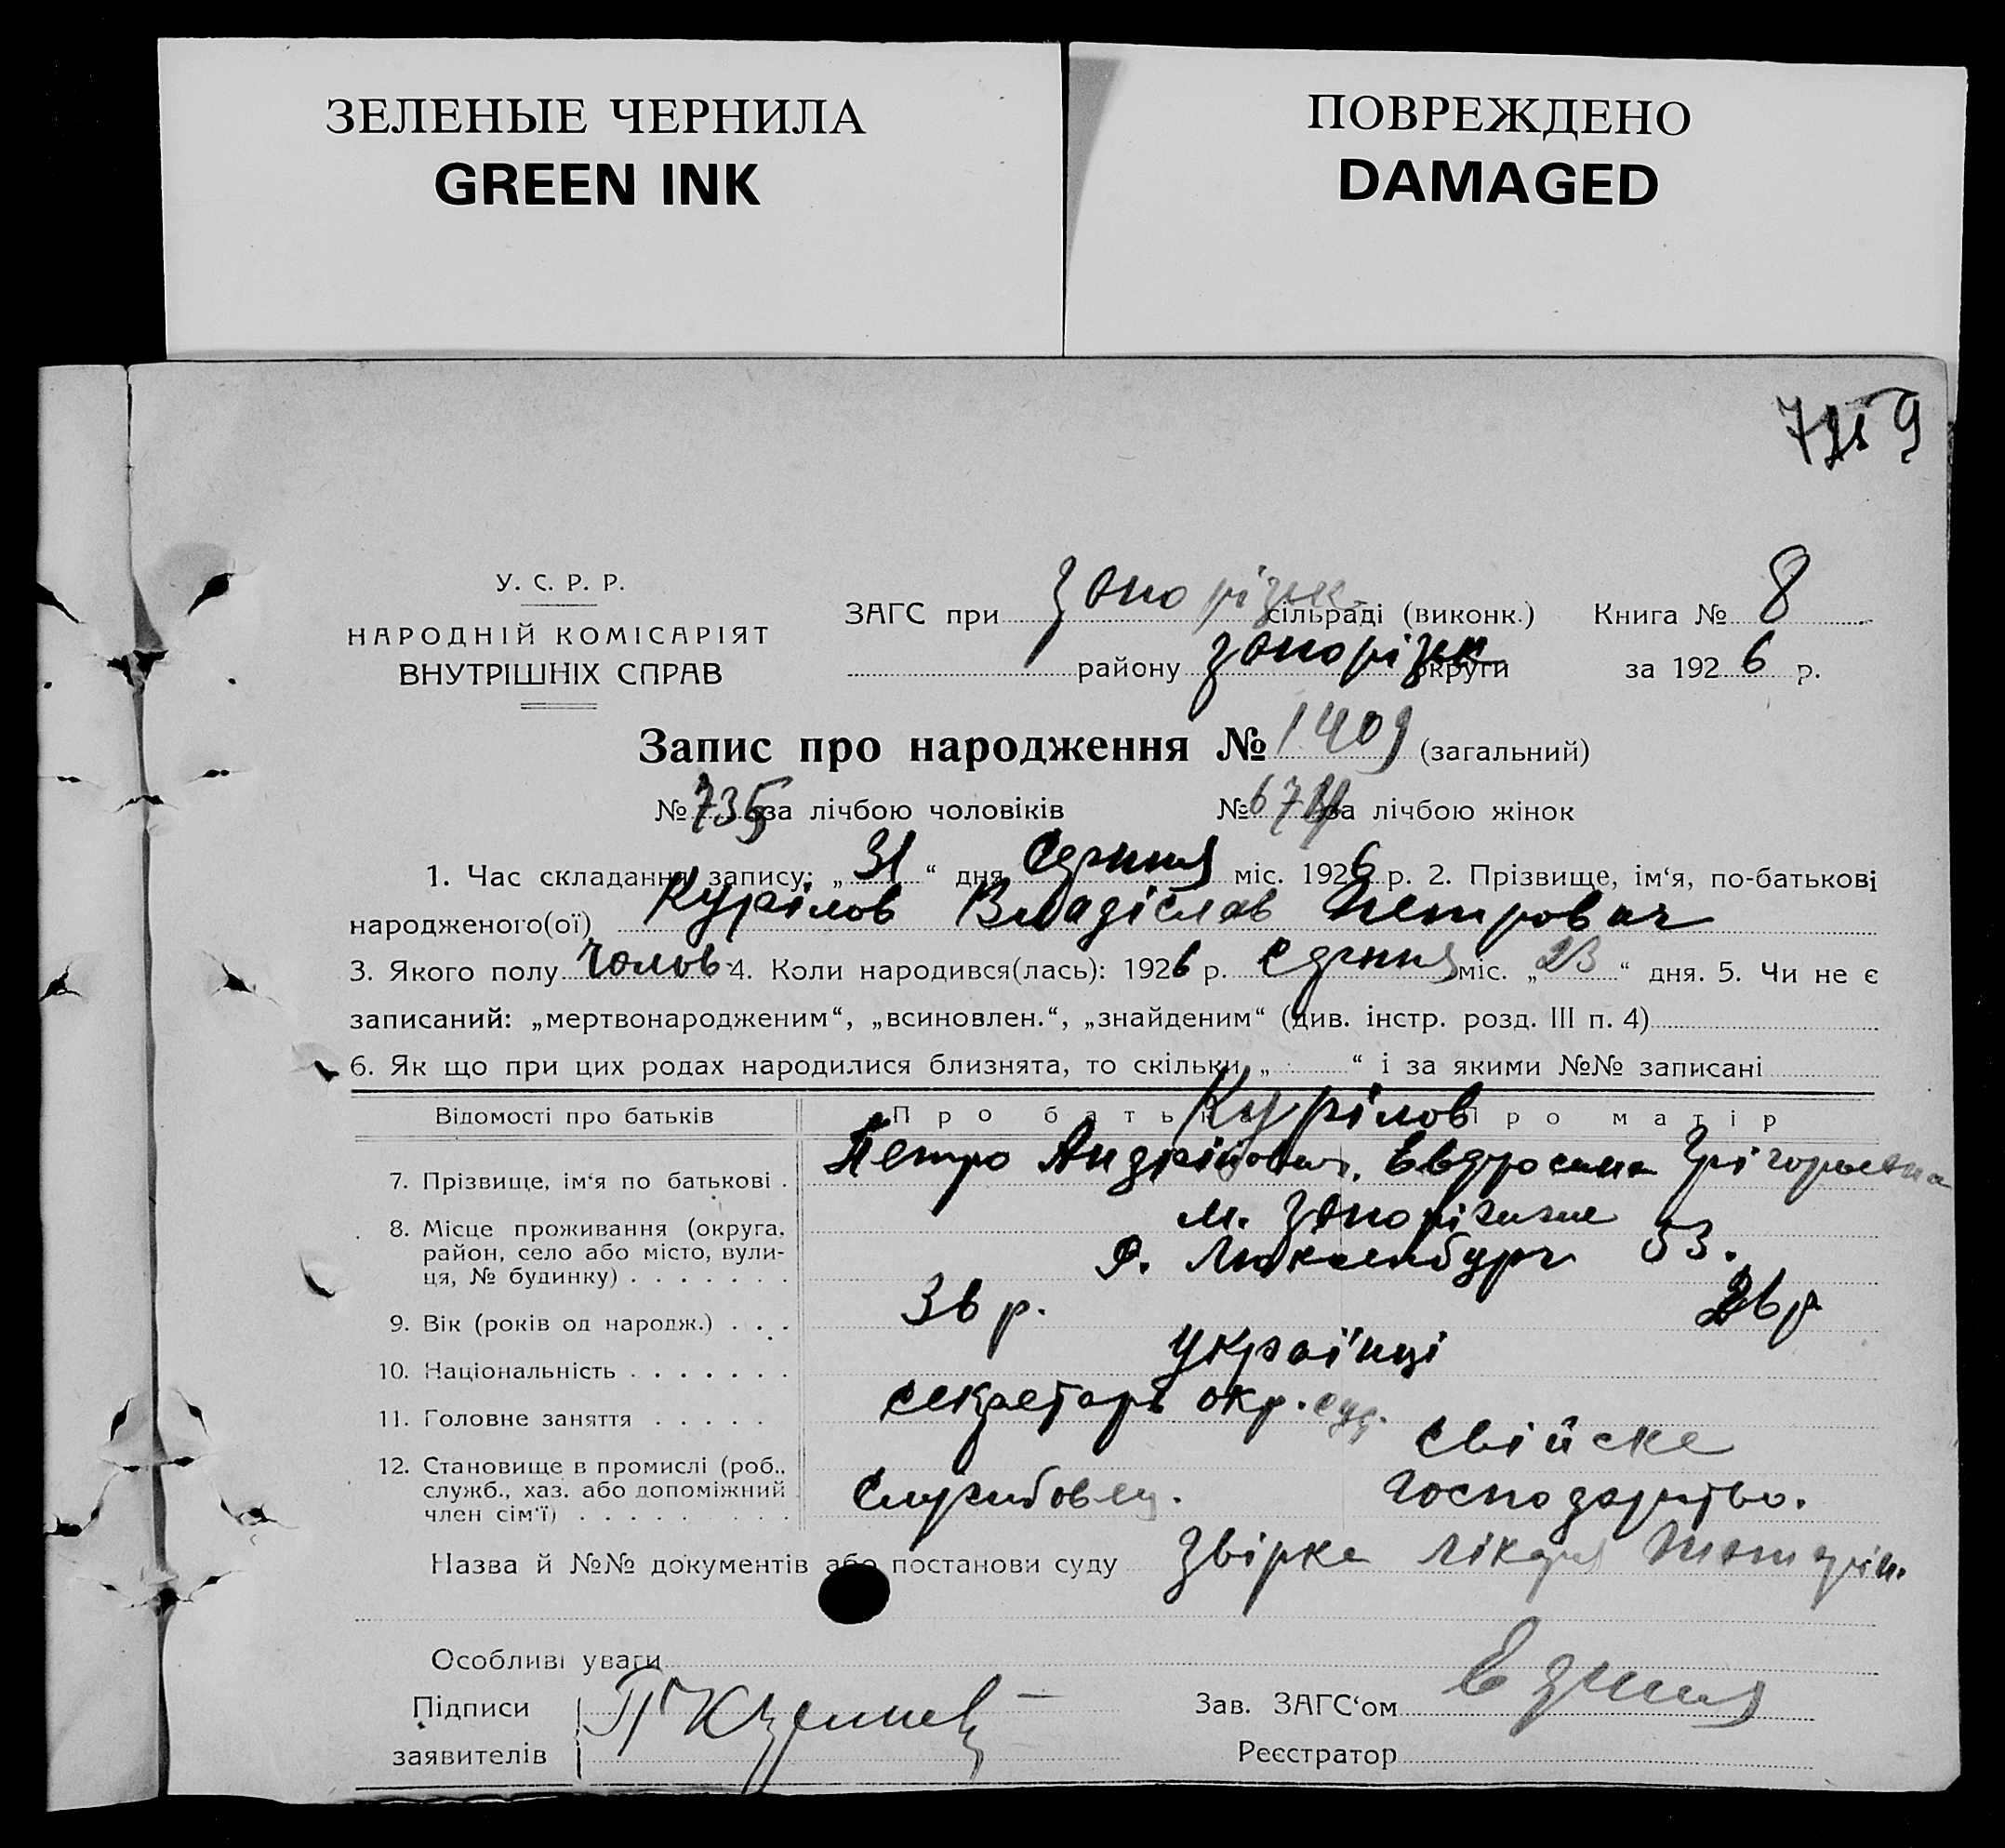 ЗЕЛЕНЫЕ ЧЕРНИЛА
GREEN INK
ПОВРЕЖДЕНО
DAMAGED
У. С. Р. Р.
НАРОДНІЙ КОМІСАРІЯТ
ВНУТРІШНІХ СПРАВ
ЗАГС при Запорізьк. сільраді (виконк.) Книга № 8
району Запорізьк округи за 1926 р.
Запис про народження № 1409 (загальний)
№ 735 за лічбою чоловіків № 674 за лічбою жінок
1. Час складання запису: „31“ дня Серпня міс. 1926 р. 2. Прізвище, ім‘я, по-батькові
народженого(ої) Курілов Владіслав Петрович
3. Якого полу Чолов 4. Коли народився(лась): 1926 р. Серпня міс. „23“ дня. 5. Чи не є
записаний: „мертвонародженим“, „всиновлен.“, „знайденим“ (див. інстр. розд. III п. 4)
6. Як що при цих родах народилися близнята, то скільки „ “ і за якими №№ записані
Відомості про батьків Про батька Про матір
Курілов
7. Прізвище, ім‘я по батькові . Петро Андрійович. Евдросина Грігорьевна
8. Місце проживання (округа, район, село або місто, вулиця, № будинку) . . . . . . . м. Запоріжже
Р. Люксенбург 53.
9. Вік (років од народж.) . . . 36 р. 26 р.
10. Національність . . . . . . . українці
11. Головне заняття . . . . . секретарь окр. суд.
свійске
12. Становище в промислі (роб., служб., хаз. або допоміжний член сім‘ї) . . . . . . . . . Службовец. господарство.
Назва й №№ документів або постанови суду Звірка лікаря
Особливі уваги
Підписи
заявителів
Зав. ЗАГС‘ом
Реєстратор